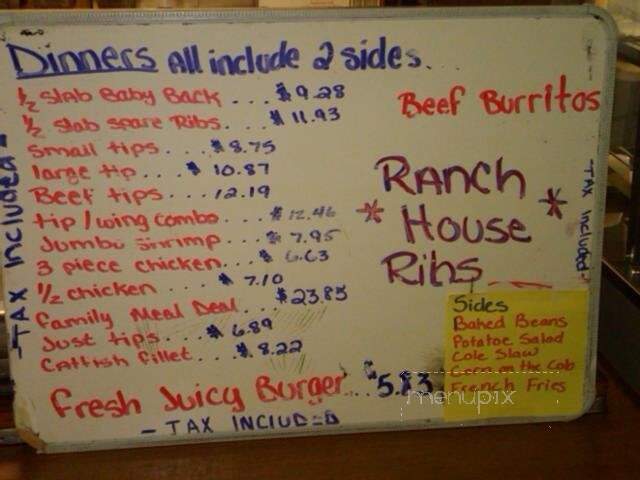 Dinners All include 2 sides...
1/2 Slab Baby Back ... $9.28
1/2 slab spare Ribs. .. $11.93
small tips .... $8.75
large tip.... $10.87
Beef tips .... 12.19
tip/wing combo .. $12.46
Jumbo Shrimp.... $7.95
3 piece chicken... $6.63
1/2 chicken .... $7.10
family Meal Deal .. $23.85
Just tips ... $6.89
Catfish fillet.... $8.22
Fresh Juicy Burger... $5.83
- TAX INCLUDED
-TAX INCLUDED-
Beef Burritos
* RANCH HOUSE Ribs *
-TAX Included-
Sides
Baked Beans
Potatoe Salad
Cole Slaw
Corn on the Cob
French Fries
menupix